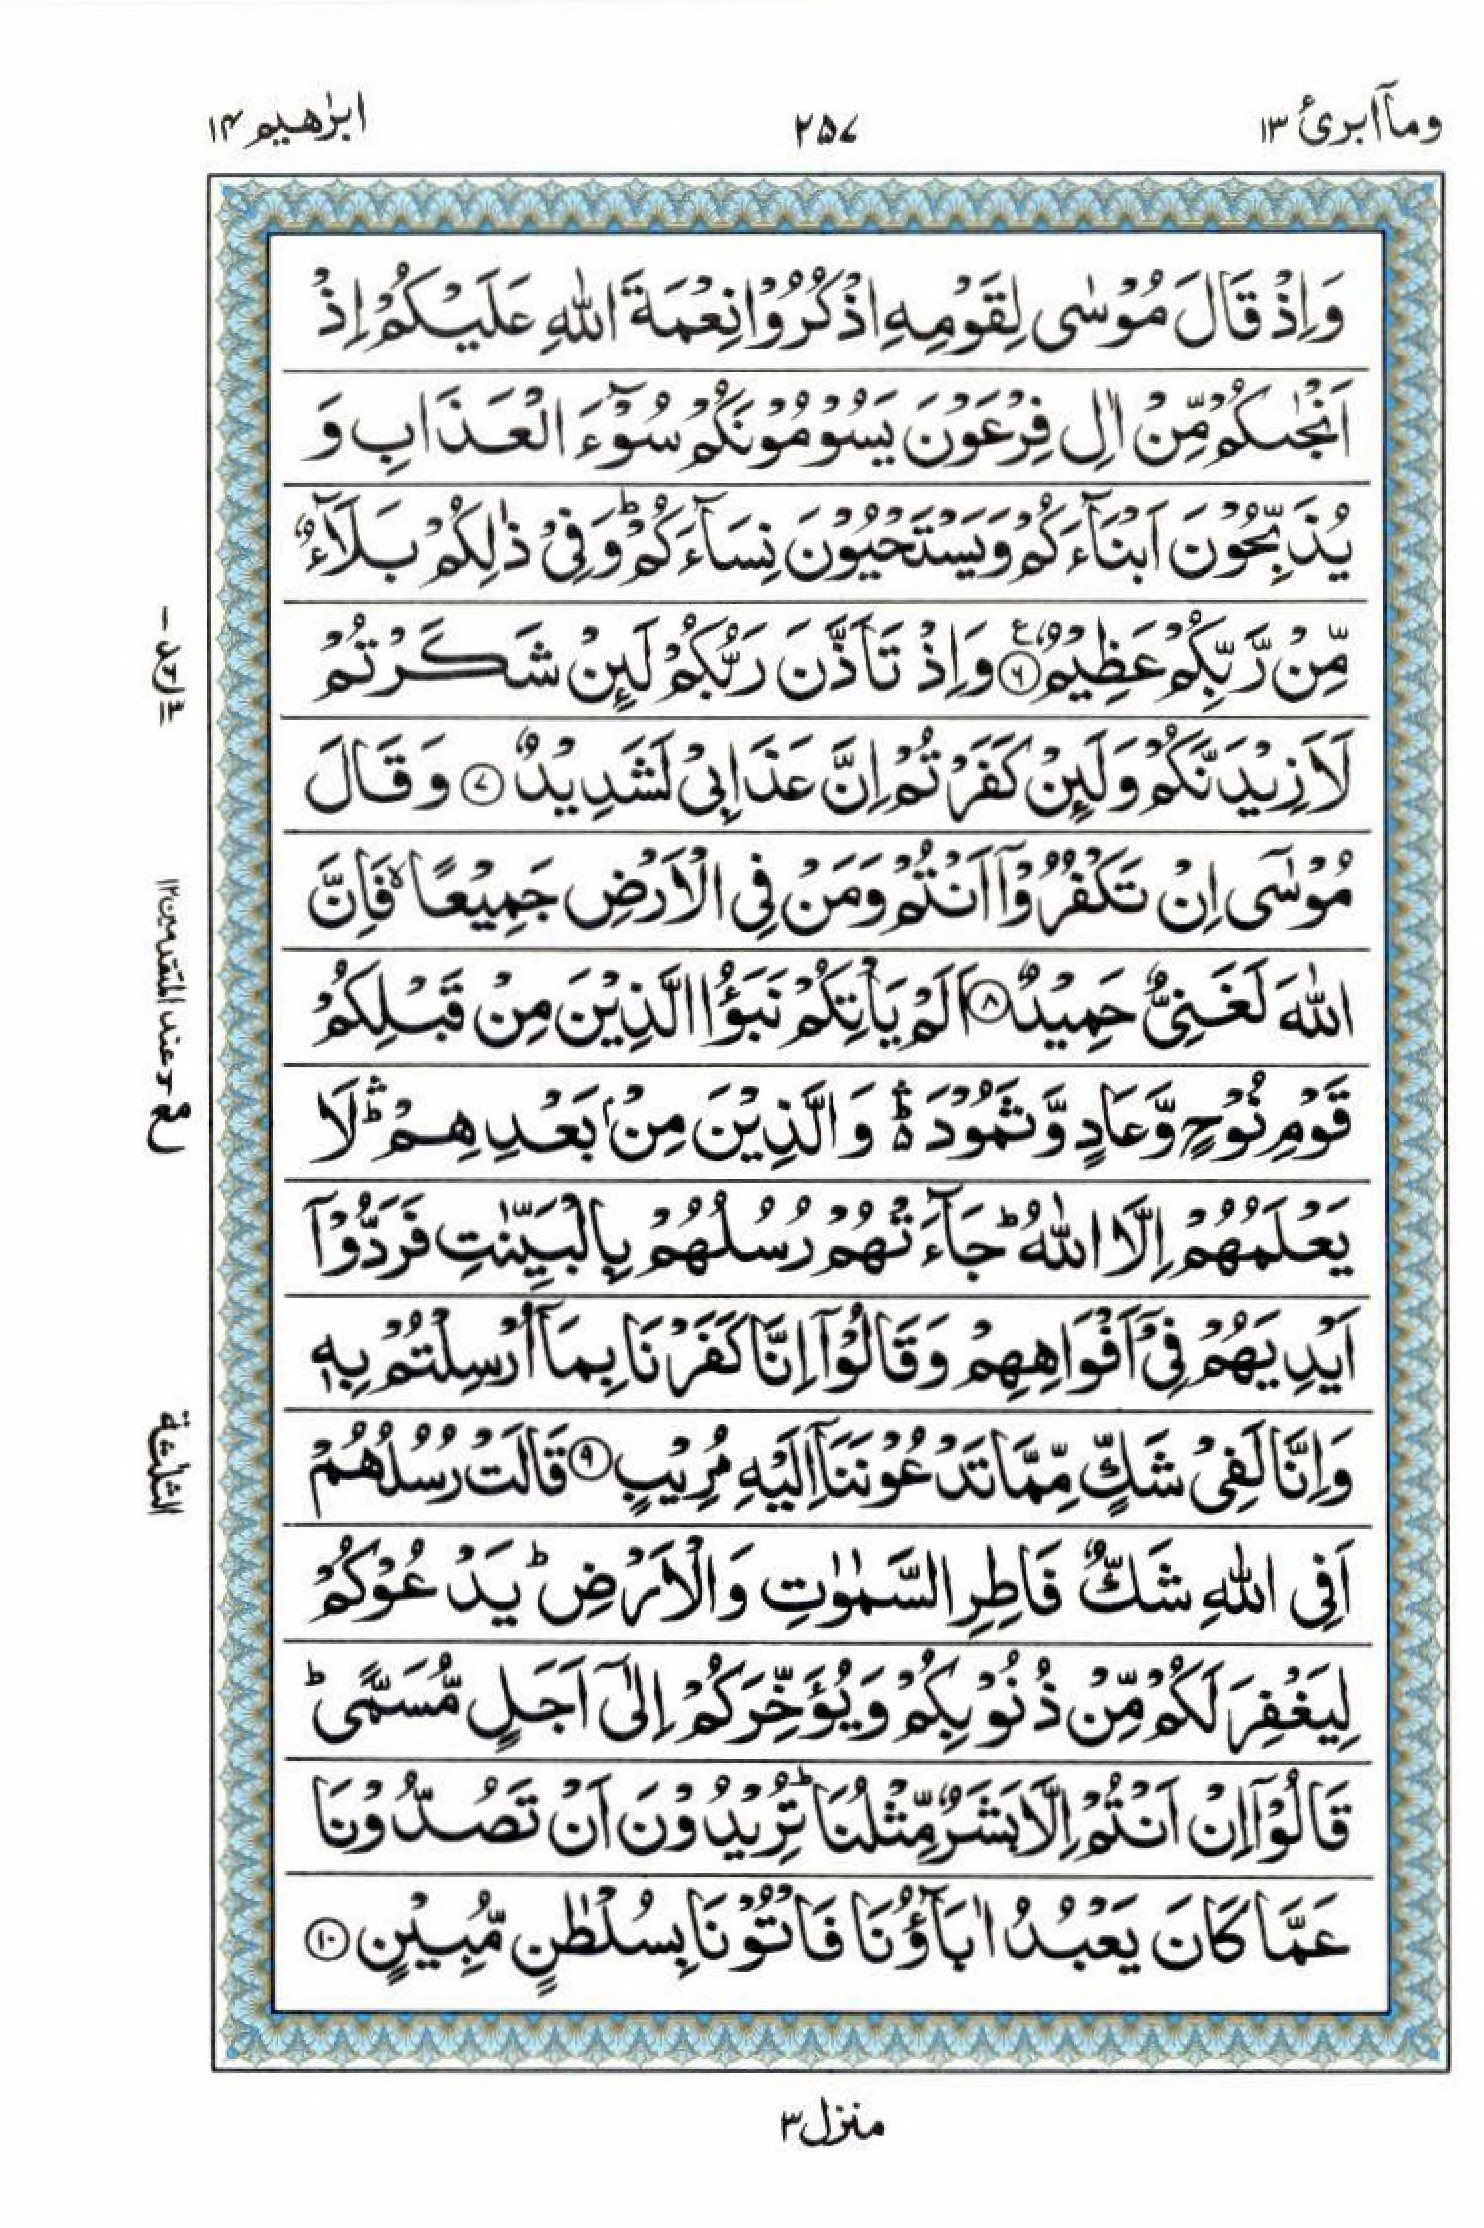 وماۤ ابرئ ١٣
٢٥٧
ابرٰهيم ١٤
وَاِذْ قَالَ مُوْسٰى لِقَوْمِهِ اذْكُرُوْا نِعْمَةَ اللّٰهِ عَلَيْكُمْ اِذْ
اَنْجٰىكُمْ مِّنْ اٰلِ فِرْعَوْنَ يَسُوْمُوْنَكُمْ سُوْٓءَ الْعَذَابِ وَ
يُذَبِّحُوْنَ اَبْنَآءَكُمْ وَيَسْتَحْيُوْنَ نِسَآءَكُمْ ؕ وَفِيْ ذٰلِكُمْ بَلَآءٌ
مِّنْ رَّبِّكُمْ عَظِيْمٌ ۧ ﴿٦﴾ وَاِذْ تَاَذَّنَ رَبُّكُمْ لَئِنْ شَكَرْتُمْ
لَاَزِيْدَنَّكُمْ وَلَئِنْ كَفَرْتُمْ اِنَّ عَذَابِيْ لَشَدِيْدٌ ﴿٧﴾ وَقَالَ
مُوْسٰٓى اِنْ تَكْفُرُوْٓا اَنْتُمْ وَمَنْ فِى الْاَرْضِ جَمِيْعًا ۙ فَاِنَّ
اللّٰهَ لَغَنِيٌّ حَمِيْدٌ ﴿٨﴾ اَلَمْ يَاْتِكُمْ نَبَؤُا الَّذِيْنَ مِنْ قَبْلِكُمْ
قَوْمِ نُوْحٍ وَّعَادٍ وَّثَمُوْدَ ۛؕ وَالَّذِيْنَ مِنْۢ بَعْدِهِمْ ۛؕ لَا
يَعْلَمُهُمْ اِلَّا اللّٰهُ ؕ جَآءَتْهُمْ رُسُلُهُمْ بِالْبَيِّنٰتِ فَرَدُّوْٓا
اَيْدِيَهُمْ فِيْٓ اَفْوَاهِهِمْ وَقَالُوْٓا اِنَّا كَفَرْنَا بِمَآ اُرْسِلْتُمْ بِهٖ
وَاِنَّا لَفِيْ شَكٍّ مِّمَّا تَدْعُوْنَنَآ اِلَيْهِ مُرِيْبٍ ﴿٩﴾ قَالَتْ رُسُلُهُمْ
اَفِى اللّٰهِ شَكٌّ فَاطِرِ السَّمٰوٰتِ وَالْاَرْضِ ؕ يَدْعُوْكُمْ
لِيَغْفِرَ لَكُمْ مِّنْ ذُنُوْبِكُمْ وَيُؤَخِّرَكُمْ اِلٰٓى اَجَلٍ مُّسَمًّى ؕ
قَالُوْٓا اِنْ اَنْتُمْ اِلَّا بَشَرٌ مِّثْلُنَا ؕ تُرِيْدُوْنَ اَنْ تَصُدُّوْنَا
عَمَّا كَانَ يَعْبُدُ اٰبَآؤُنَا فَاْتُوْنَا بِسُلْطٰنٍ مُّبِيْنٍ ﴿١٠﴾
الثلثة
منزل ٣